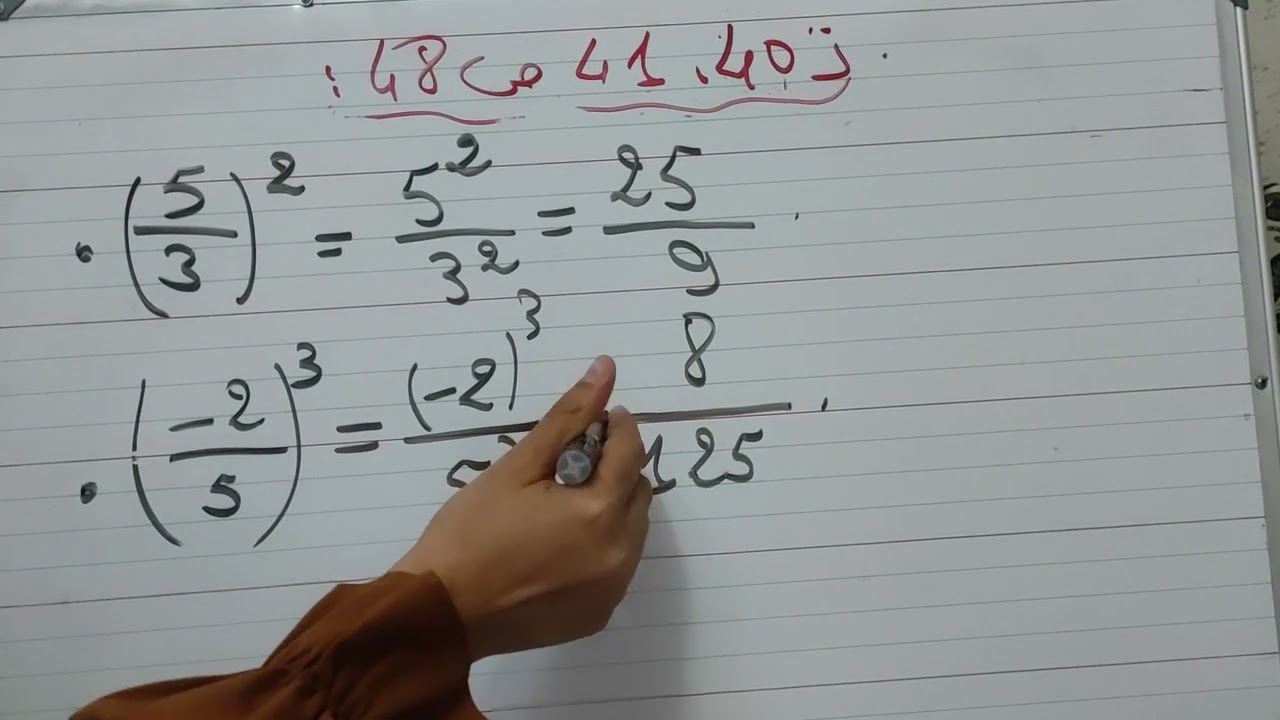 ت 40، 41 ص 48 :
• (5/3)² = 5²/3² = 25/9 .
• (-2/5)³ = (-2)³/5 8/125 .